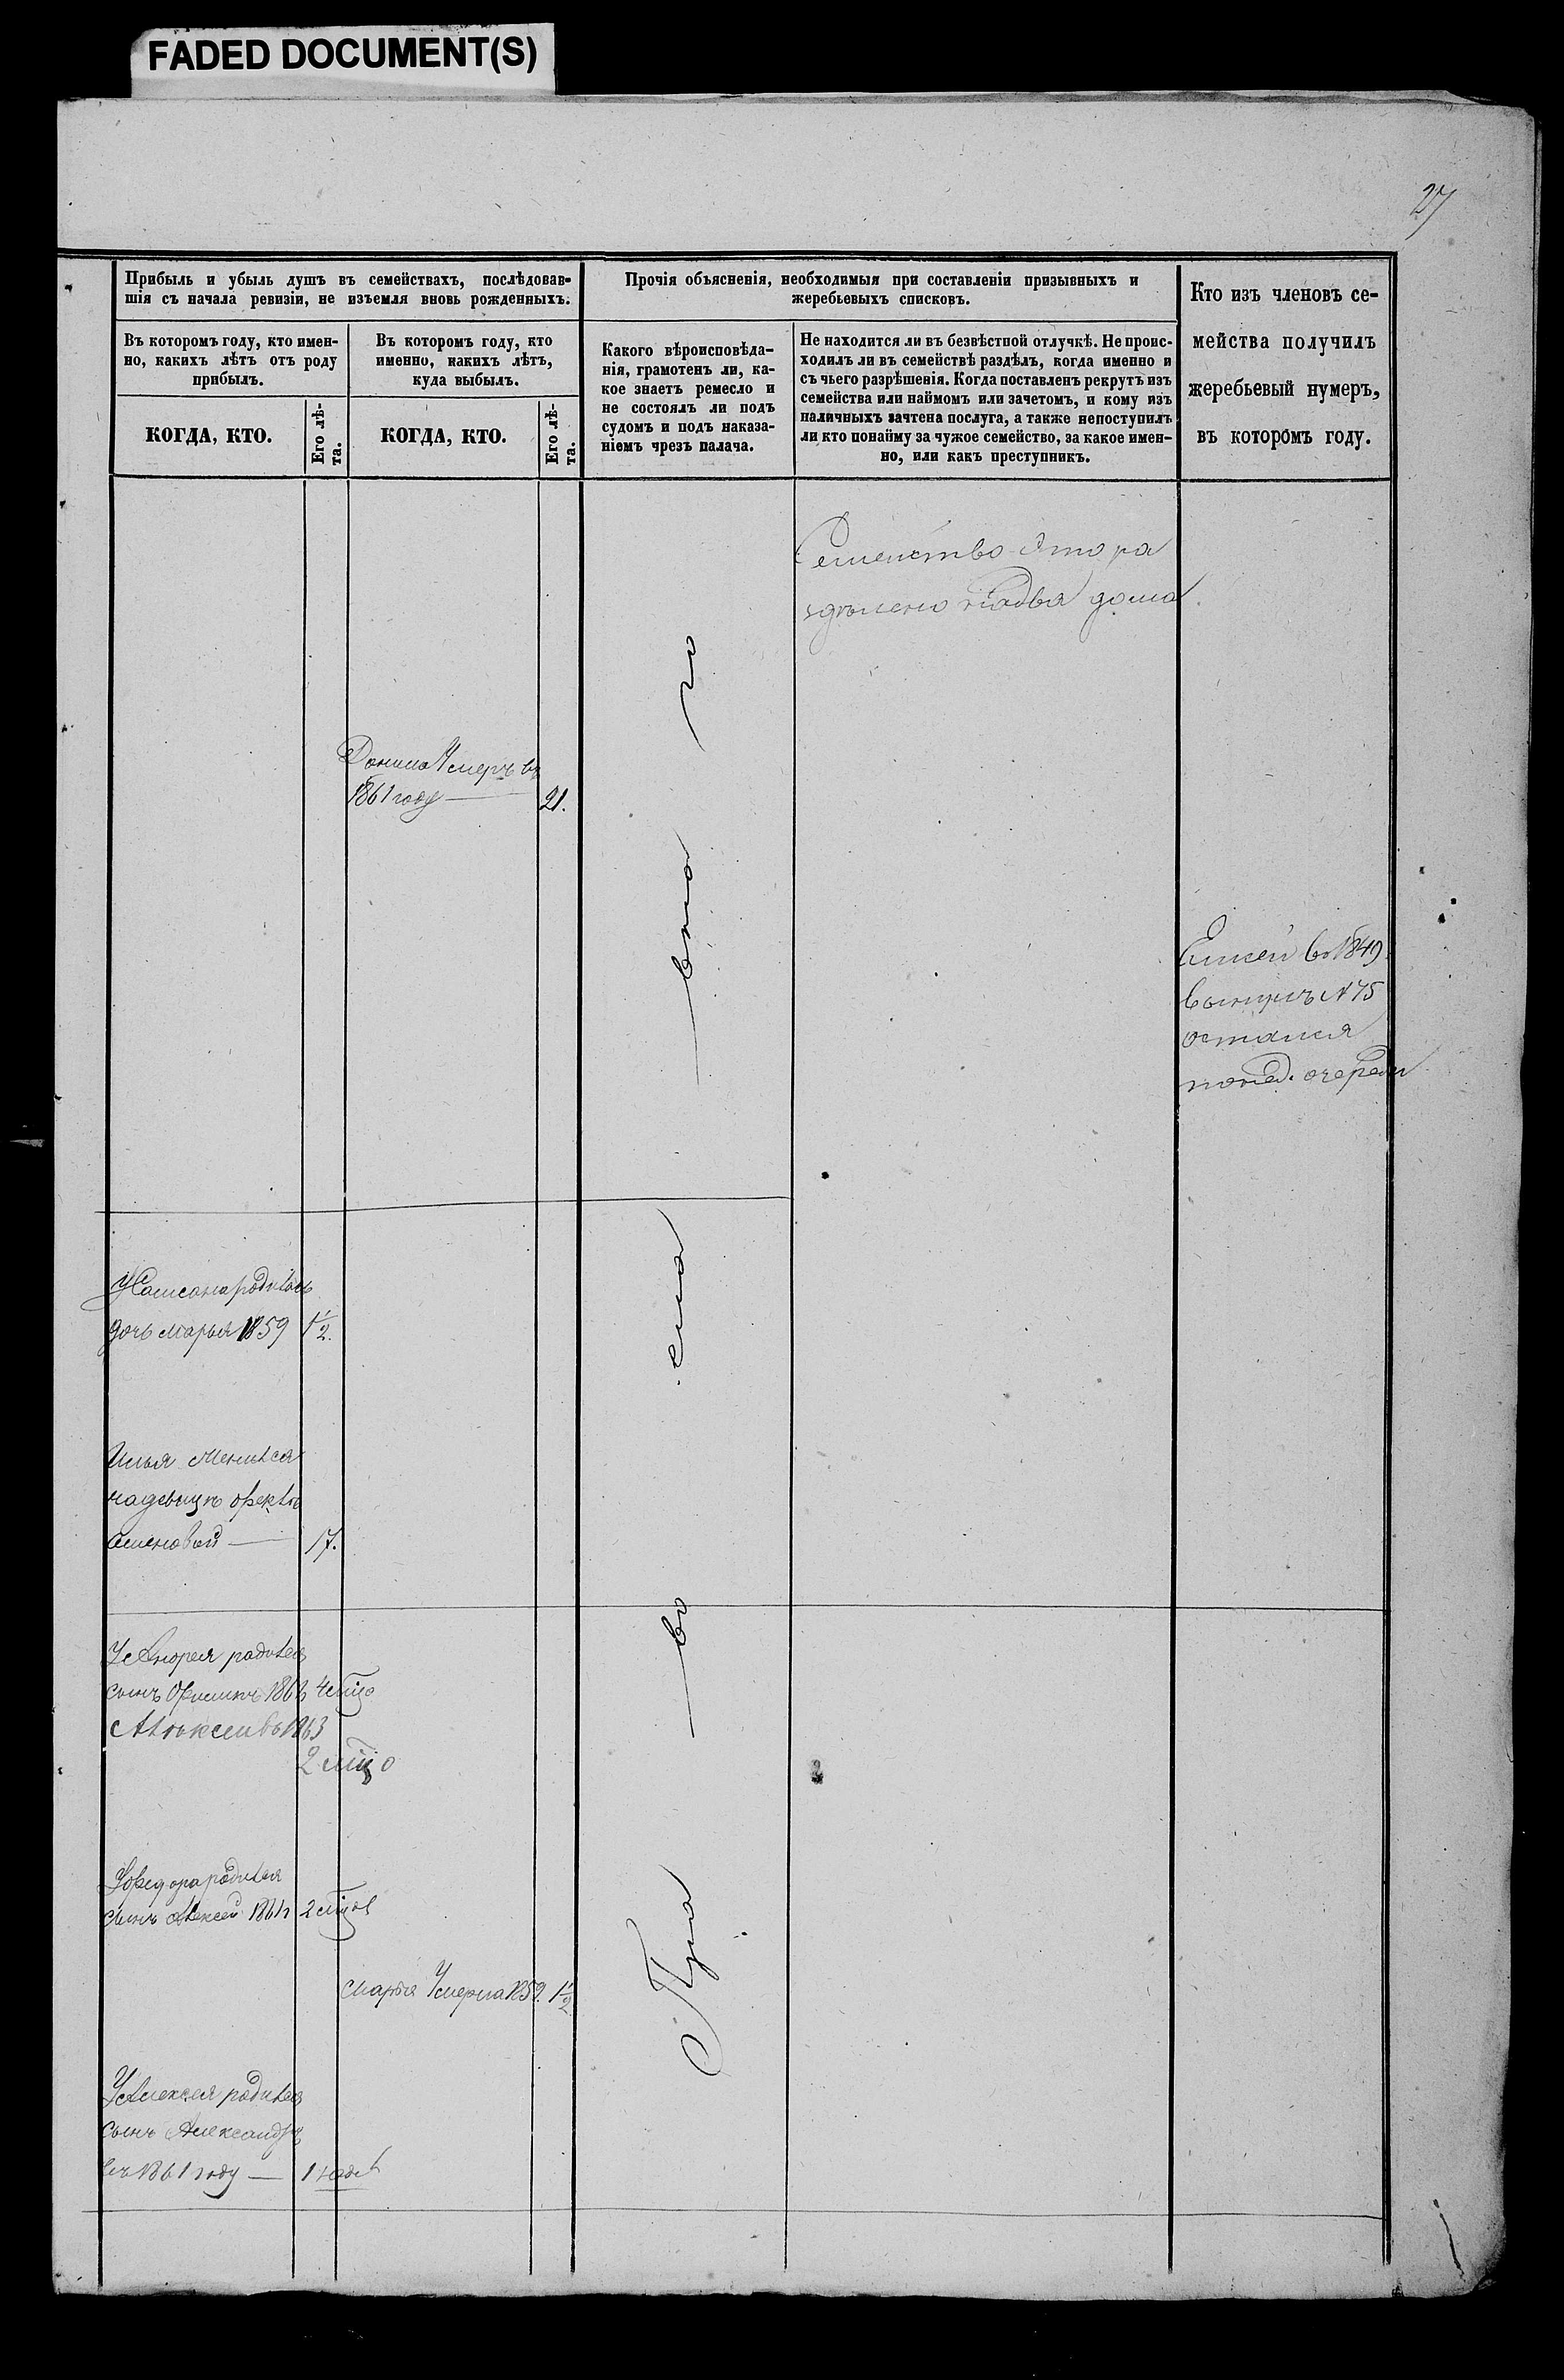 FADED DOCUMENT(S)
27
Прибыль и убыль душъ въ семействахъ, послѣдовав-
шія съ начала ревизіи, не изъемля вновь рожденныхъ.
Въ которомъ году, кто имен-
но, какихъ лѣтъ отъ роду
прибылъ.
КОГДА, КТО.
Его лѣ-
та.
Въ которомъ году, кто
именно, какихъ лѣтъ,
куда выбылъ.
КОГДА, КТО.
Его лѣ-
та.
Прочія объясненія, необходимыя при составленіи призывныхъ и
жеребьевыхъ списковъ.
Какого вѣроисповѣда-
нія, грамотенъ ли, ка-
кое знаетъ ремесло и
не состоялъ ли подъ
судомъ и подъ наказа-
ніемъ чрезъ палача.
Не находится ли въ безвѣстной отлучкѣ. Не проис-
ходилъ ли въ семействѣ раздѣлъ, когда именно и
съ чьего разрѣшенія. Когда поставленъ рекрутъ изъ
семейства или наймомъ или зачетомъ, и кому изъ
наличныхъ зачтена послуга, а также непоступилъ
ли кто понайму за чужое семейство, за какое имен-
но, или какъ преступникъ.
Кто изъ членовъ се-
мейства получилъ
жеребьевый нумеръ,
въ которомъ году.
Семейство это ра
здѣлено на два дома
Данила Умеръ въ
1861 году — 21.
въ 1849
вынулъ N 75
остался
очереди
родилась
дочь Марья 1859 1½.
Илья Женился
на девицѣ
Семеновой — 17.
У Андрея родился
сынъ
1863
2
У Федора родился
сынъ Алексей 2
Марья Умерла 1859. 1½
У Алексея родился
сынъ Александръ
въ 1861 году — 1
Право
сла
вна
го